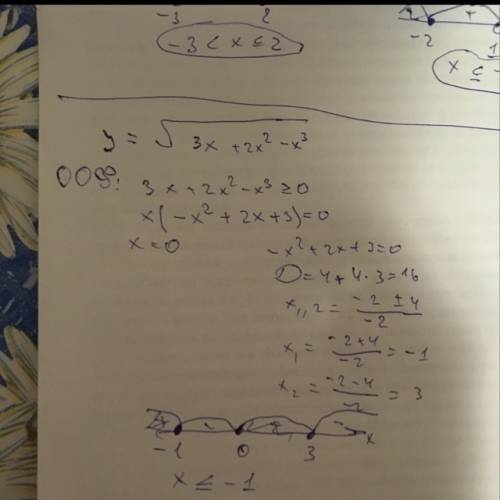 -3 2
-3 < x ≤ 2
-2 1
x ≤ -
y = √3x + 2x² - x³
ООФ:
3x + 2x² - x³ ≥ 0
x(-x² + 2x + 3) = 0
x = 0
-x² + 2x + 3 = 0
D = 4 + 4 · 3 = 16
x₁,₂ = (-2 ± 4)/-2
x₁ = (-2 + 4)/-2 = -1
x₂ = (-2 - 4)/-2 = 3
-1 0 3 x
x ≤ -1